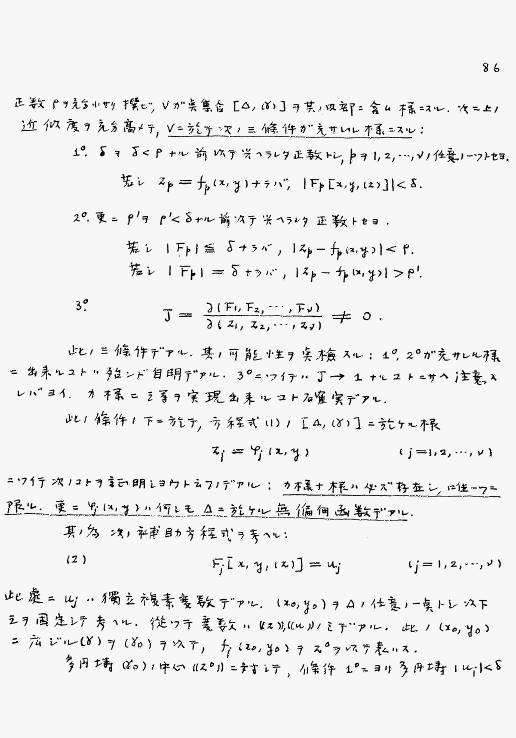 86
正数 ρ ヲ充分小サク撰ビ, V ガ点集合 [Δ, (γ)] ヲ其ノ内部ニ含ム様ニスル. 次ニ上ノ
近似度ヲ充分高メテ, V ニ於テ次ノ三條件ガ充サレル様ニスル:
1º. δ ヲ δ < ρ ナル前以テ与ヘラレタ正数トシ, p ヲ 1, 2, ..., ν ノ任意ノ一ツトセヨ.
若シ Zp = fp(x, y) ナラバ, |Fp[x, y, (z)]| < δ.
2º. 更ニ ρ' ヲ ρ' < δ ナル前以テ与ヘラレタ正数トセヨ.
若シ |Fp| ≦ δ ナラバ, |Zp − fp(x, y)| < ρ.
若シ |Fp| = δ ナラバ, |Zp − fp(x, y)| > ρ'.
3º J = ∂(F1, F2, ..., Fν) / ∂(Z1, Z2, ..., Zν) ≠ 0.
此ノ三條件デアル. 其ノ可能性ヲ実檢スル: 1º, 2º ガ充サレル様
ニ出来ルコトハ殆ンド自明デアル. 3º ニツイテハ J → 1 ナルコトニサヘ注意ス
レバヨイ. カ様ニ之等ヲ実現出来ルコト確実デアル.
此ノ條件ノ下ニ於テ, 方程式 (1) ノ [Δ, (γ)] ニ於ケル根
Zj = φj(x, y) (j = 1, 2, ..., ν)
ニツイテ次ノコトヲ説明シヨウト云フノデアル: カ様ナ根ハ必ズ存在シ, 唯一ツニ
限ル. 更ニ φj(x, y) ハ何レモ Δ ニ於ケル無偏何函数デアル.
其ノ為次ノ補助方程式ヲ考ヘル:
(2) Fj[x, y, (z)] = uj (j = 1, 2, ..., ν)
此處ニ uj ハ獨立複素変数デアル. (x0, y0) ヲ Δ ノ任意ノ一点トシ以下
之ヲ固定シテ考ヘル. 從ツテ変数ハ ((z)), ((u)) ノミデアル. 此ノ (x0, y0)
ニ応ジル (γ) ヲ (γ0) ヲ以テ, fj(x0, y0) ヲ z0 ヲ以テ表ハス.
多円壔 (γ0) ノ中心 ((z0)) ニ対シテ, 條件 1º ニヨリ多円壔 |uj| < δ